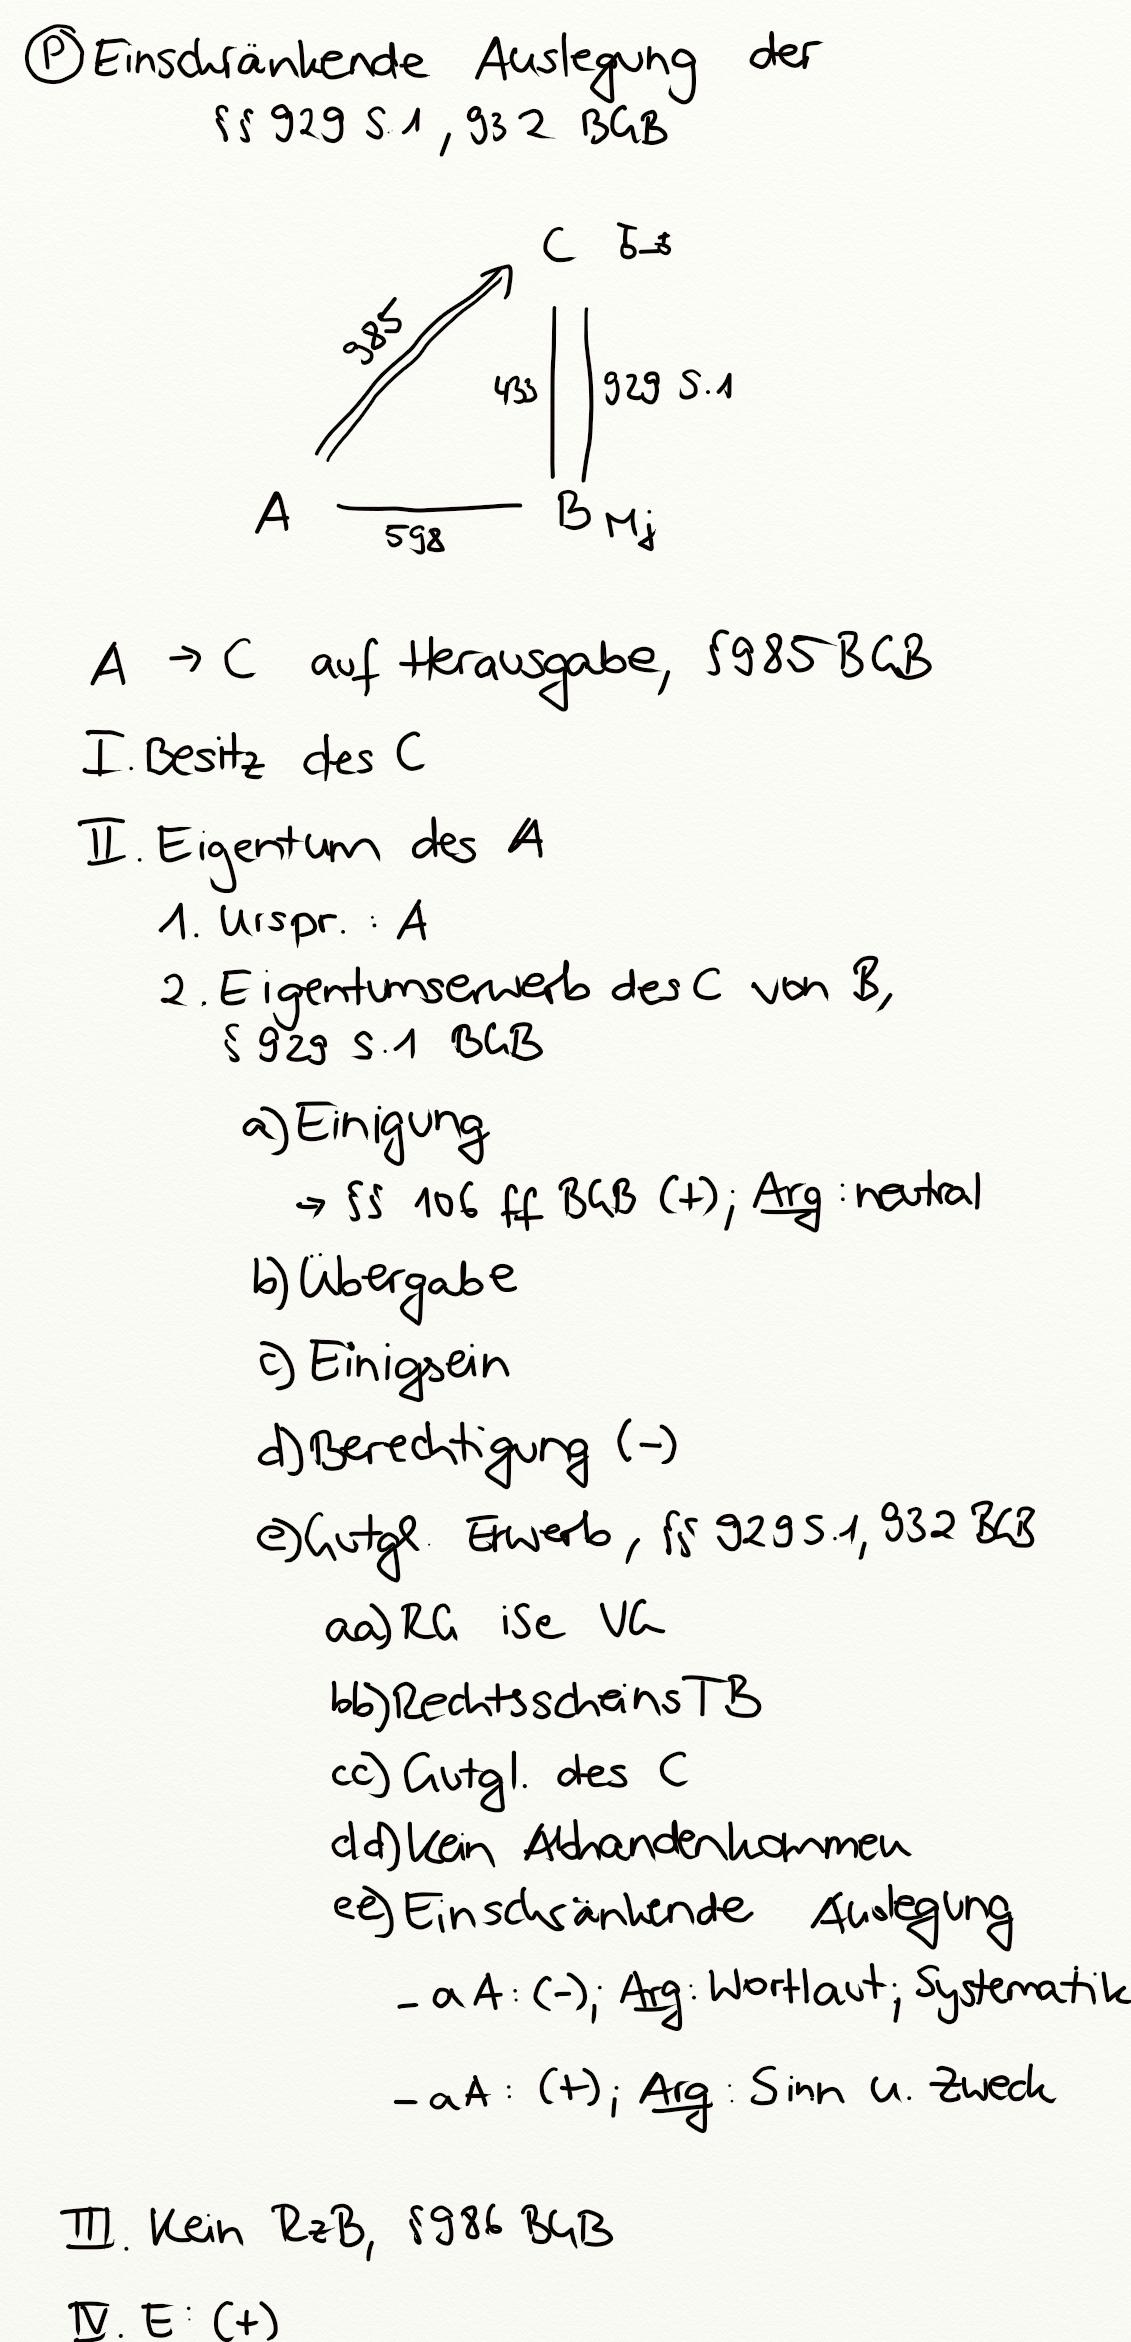 Ⓟ Einschränkende Auslegung der
§§ 929 S.1, 932 BGB
C
985
433 929 S.1
A B Mj
598
A → C auf Herausgabe, §985 BGB
I. Besitz des C
II. Eigentum des A
1. Urspr. : A
2. Eigentumserwerb des C von B,
§ 929 S.1 BGB
a) Einigung
→ §§ 106 ff BGB (+); Arg: neutral
b) Übergabe
c) Einigsein
d) Berechtigung (-)
e) Gutgl. Erwerb, §§ 929 S.1, 932 BGB
aa) RG iSe VG
bb) RechtsscheinsTB
cc) Gutgl. des C
dd) Kein Abhandenkommen
ee) Einschränkende Auslegung
- aA: (-); Arg: Wortlaut; Systematik
- aA: (+); Arg: Sinn u. Zweck
III. Kein RzB, §986 BGB
IV. E: (+)